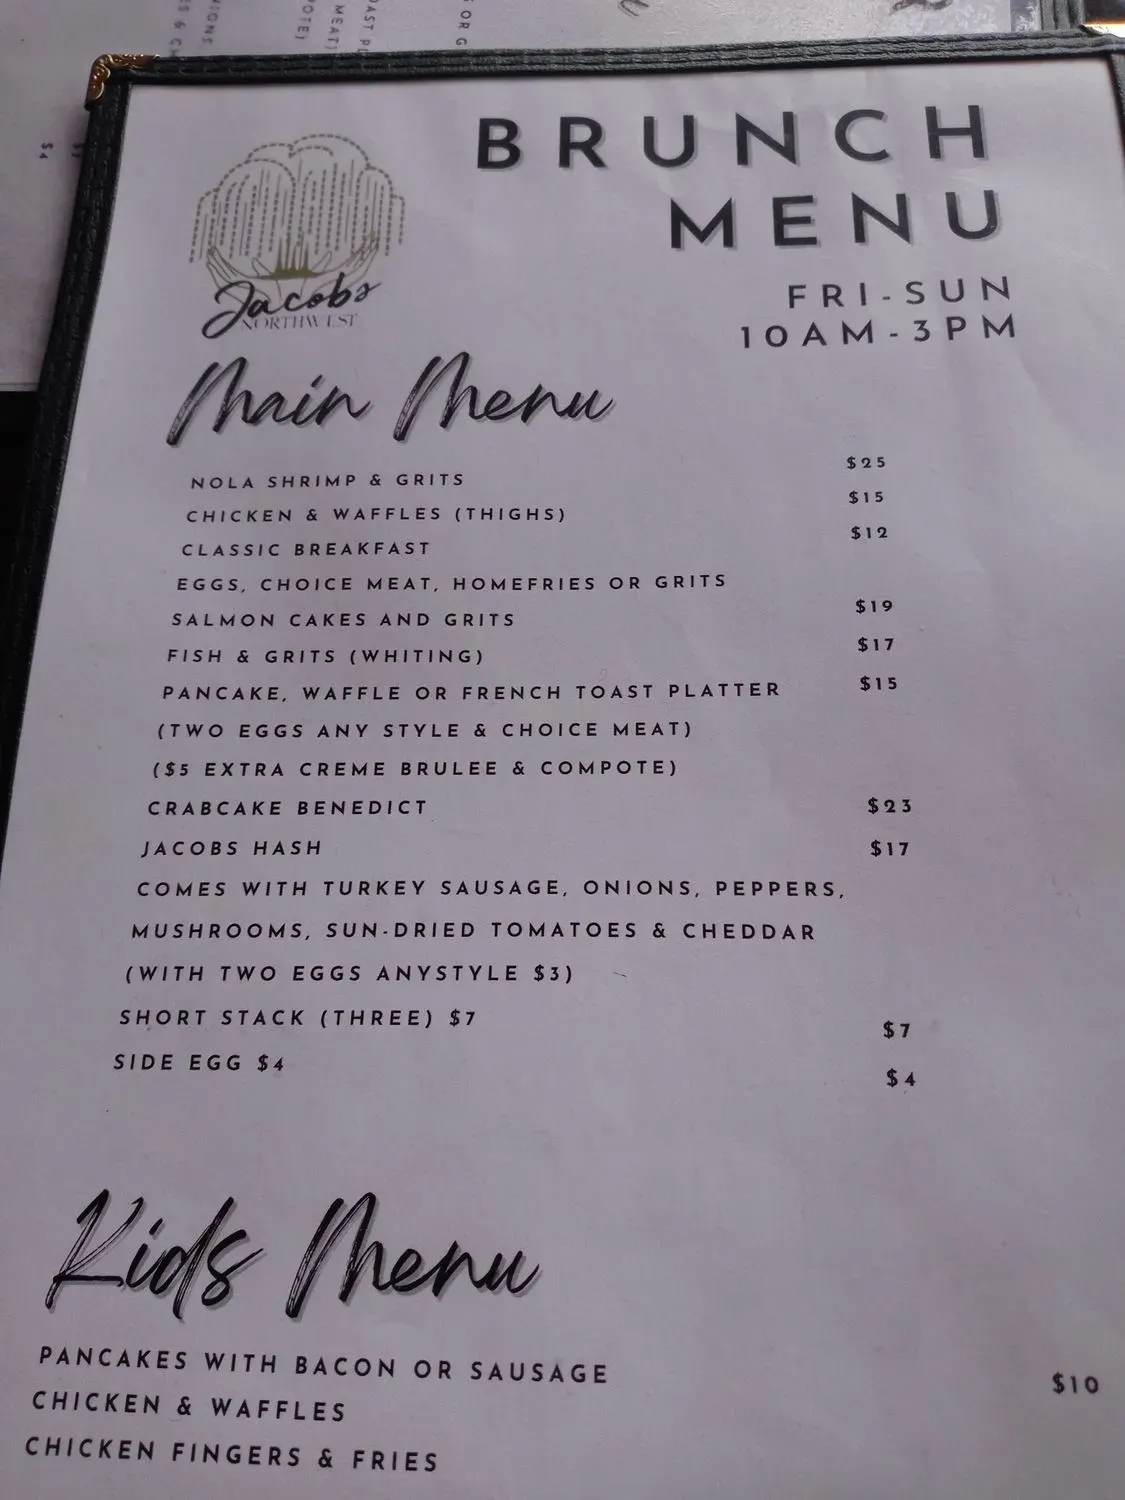 BRUNCH
MENU
FRI-SUN
10AM-3PM
Jacobs
NORTHWEST
Main Menu
NOLA SHRIMP & GRITS $25
CHICKEN & WAFFLES (THIGHS) $15
CLASSIC BREAKFAST $12
EGGS, CHOICE MEAT, HOMEFRIES OR GRITS
SALMON CAKES AND GRITS $19
FISH & GRITS (WHITING) $17
PANCAKE, WAFFLE OR FRENCH TOAST PLATTER $15
(TWO EGGS ANY STYLE & CHOICE MEAT)
($5 EXTRA CREME BRULEE & COMPOTE)
CRABCAKE BENEDICT $23
JACOBS HASH $17
COMES WITH TURKEY SAUSAGE, ONIONS, PEPPERS,
MUSHROOMS, SUN-DRIED TOMATOES & CHEDDAR
(WITH TWO EGGS ANYSTYLE $3)
SHORT STACK (THREE) $7 $7
SIDE EGG $4 $4
Kids Menu
PANCAKES WITH BACON OR SAUSAGE $10
CHICKEN & WAFFLES
CHICKEN FINGERS & FRIES